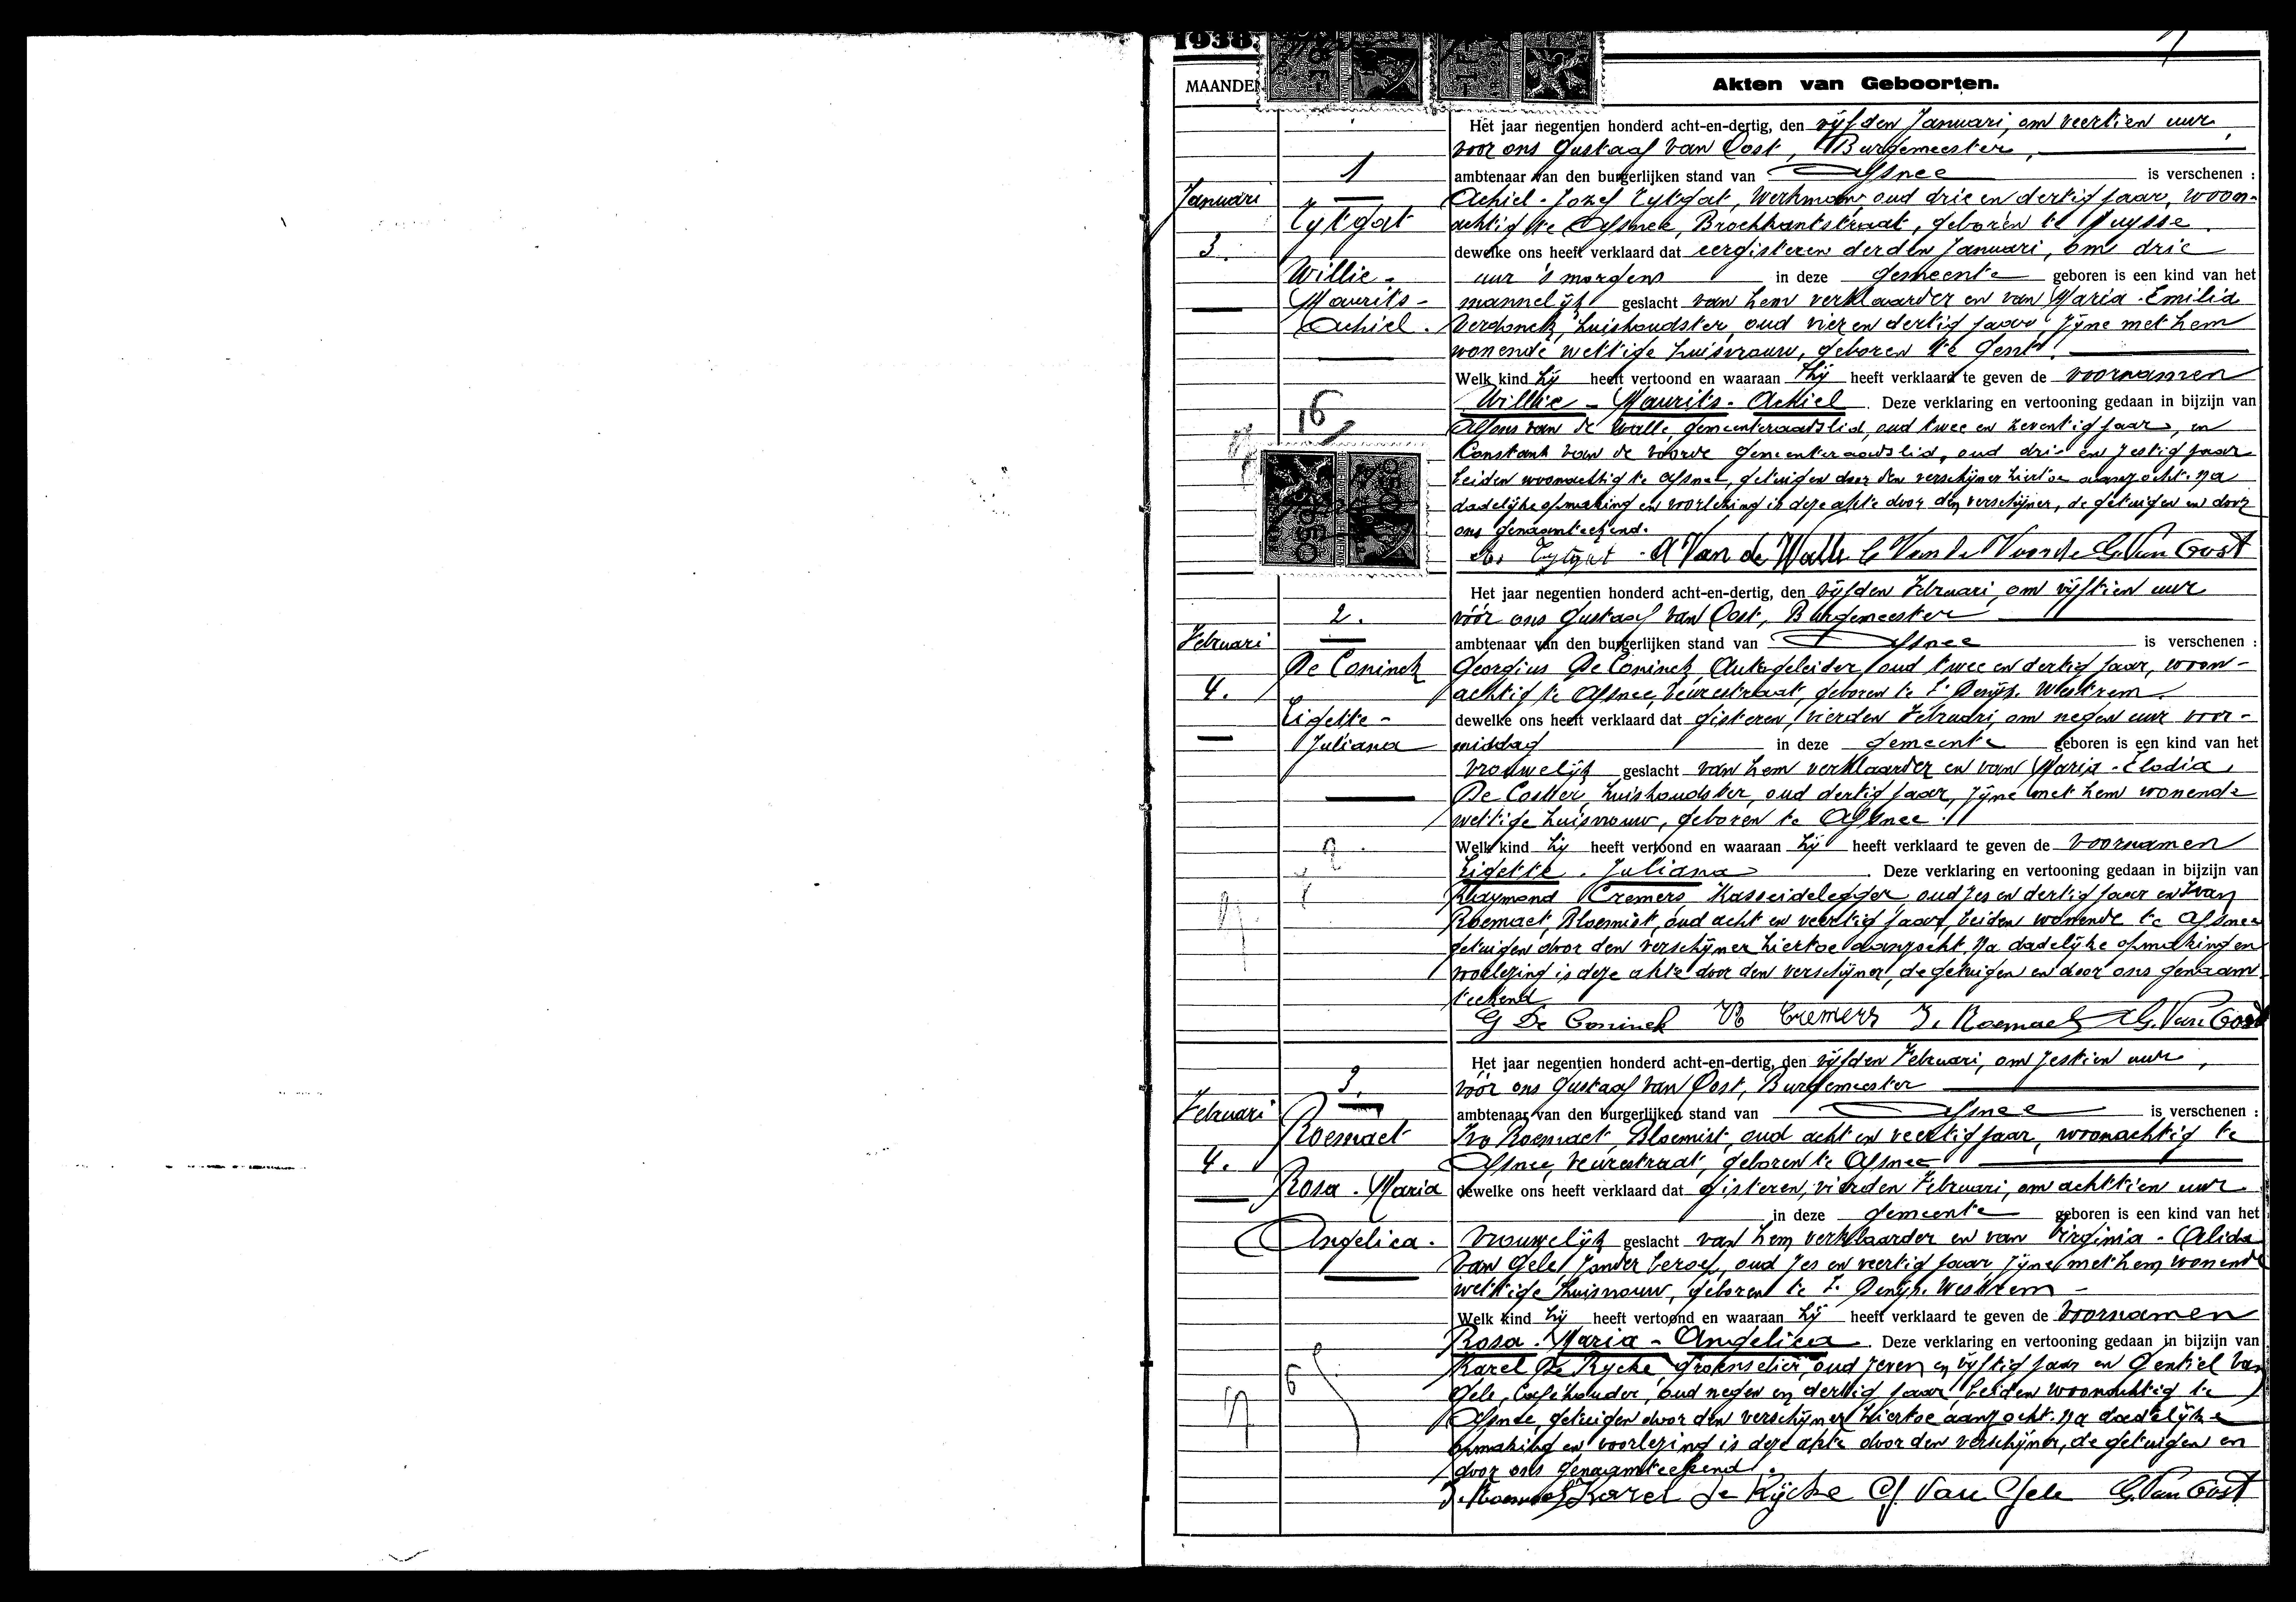 1938
MAANDEN
Akten van Geboorten.
Het jaar negentien honderd acht-en-dertig, den vijfden Januari, om veertien uur,
voor ons Gustaaf Van Oost, Burgemeester,
1
ambtenaar van den burgerlijken stand van Afsnee is verschenen :
Januari
Achiel-Jozef Tytgat, Werkman oud drie en dertig jaar, woon-
Tytgat
achtig te Afsnee, Broekkantstraat, geboren te
3.
dewelke ons heeft verklaard dat eergisteren derden Januari, om drie
Willie-
uur 's morgens in deze gemeente geboren is een kind van het
Maurits-
mannelijk geslacht van hem verklaarder en van Maria-Emilia
Achiel.
Verdonck, huishoudster, oud vier en dertig jaar, zijne met hem
wonende wettige huisvrouw, geboren te Gent.
Welk kind hij heeft vertoond en waaraan hij heeft verklaard te geven de voornamen
Willie - Maurits - Achiel. Deze verklaring en vertooning gedaan in bijzijn van
16
Alfons van de Walle, gemeenteraadslid, oud twee en zeventig jaar, en
Constant van de Voorde gemeenteraadslid, oud drie en zestig jaar
beiden woonachtig te Afsnee, getuigen door den verschijner hiertoe aanzocht. Na
dadelijke opmaking en voorlezing is deze akte door den verschijner, de getuigen en door
ons genaamteekend.
Tytgat A Van de Walle C Van de Voorde G. Van Oost
Het jaar negentien honderd acht-en-dertig, den vijfden Februari, om vijftien uur
2.
vóór ons Gustaaf Van Oost, Burgemeester
Februari
ambtenaar van den burgerlijken stand van Afsnee is verschenen :
De Coninck
Georgius De Coninck, Autogeleider, oud twee en dertig jaar, woon-
4.
achtig te Afsnee, Veurestraat, geboren te St Denijs Westrem.
Ligette-
dewelke ons heeft verklaard dat gisteren, vierden Februari, om negen uur voor-
Juliana
middag in deze gemeente geboren is een kind van het
vrouwelijk geslacht van hem verklaarder en van Maria-Elodia,
De Coster, huishoudster, oud dertig jaar, zijne met hem wonende
wettige huisvrouw, geboren te Afsnee.
Welk kind hij heeft vertoond en waaraan hij heeft verklaard te geven de voornamen
Ligette. Juliana. Deze verklaring en vertooning gedaan in bijzijn van
Raymond Cremers, Kasseidelegger, oud zes en dertig jaar en Ivan
Roemaet, Bloemist, oud acht en veertig jaar, beiden wonende te Afsnee
getuigen door den verschijner hiertoe aanzocht. Na dadelijke opmaking en
voorlezing is deze akte door den verschijner, de getuigen en door ons genaam
teekend
G De Coninck R Cremers I. Roemaet G. Van Oost
Het jaar negentien honderd acht-en-dertig, den vijfden Februari, om zestien uur,
3.
vóór ons Gustaaf Van Oost, Burgemeester
Februari
ambtenaar van den burgerlijken stand van Afsnee is verschenen :
Roemaet
Ivo Roemaet, Bloemist, oud acht en veertig jaar, woonachtig te
4.
Afsnee, Veurestraat, geboren te Afsnee
Rosa-Maria
dewelke ons heeft verklaard dat gisteren, vierden Februari, om achttien uur
in deze gemeente geboren is een kind van het
Angelica.
vrouwelijk geslacht van hem verklaarder en van Virginia-Alida
Van Gele, zonder beroep, oud zes en veertig jaar, zijne met hem wonende
wettige huisvrouw, geboren te St. Denijs. Westrem -
Welk kind hij heeft vertoond en waaraan hij heeft verklaard te geven de voornamen
Rosa-Maria-Angelica. Deze verklaring en vertooning gedaan in bijzijn van
Karel De Rycke, groenselier, oud zeven en vijftig jaar en Gentiel Van
6
Gele, Cafehouder, oud negen en dertig jaar, beiden woonachtig te
Afsnee, getuigen door den verschijner hiertoe aanzocht. Na dadelijke
opmaking en voorlezing is deze akte door den verschijner, de getuigen en
door ons genaamteekend.
I. Roemaet Karel De Rijcke G. Van Gele G. Van Oost